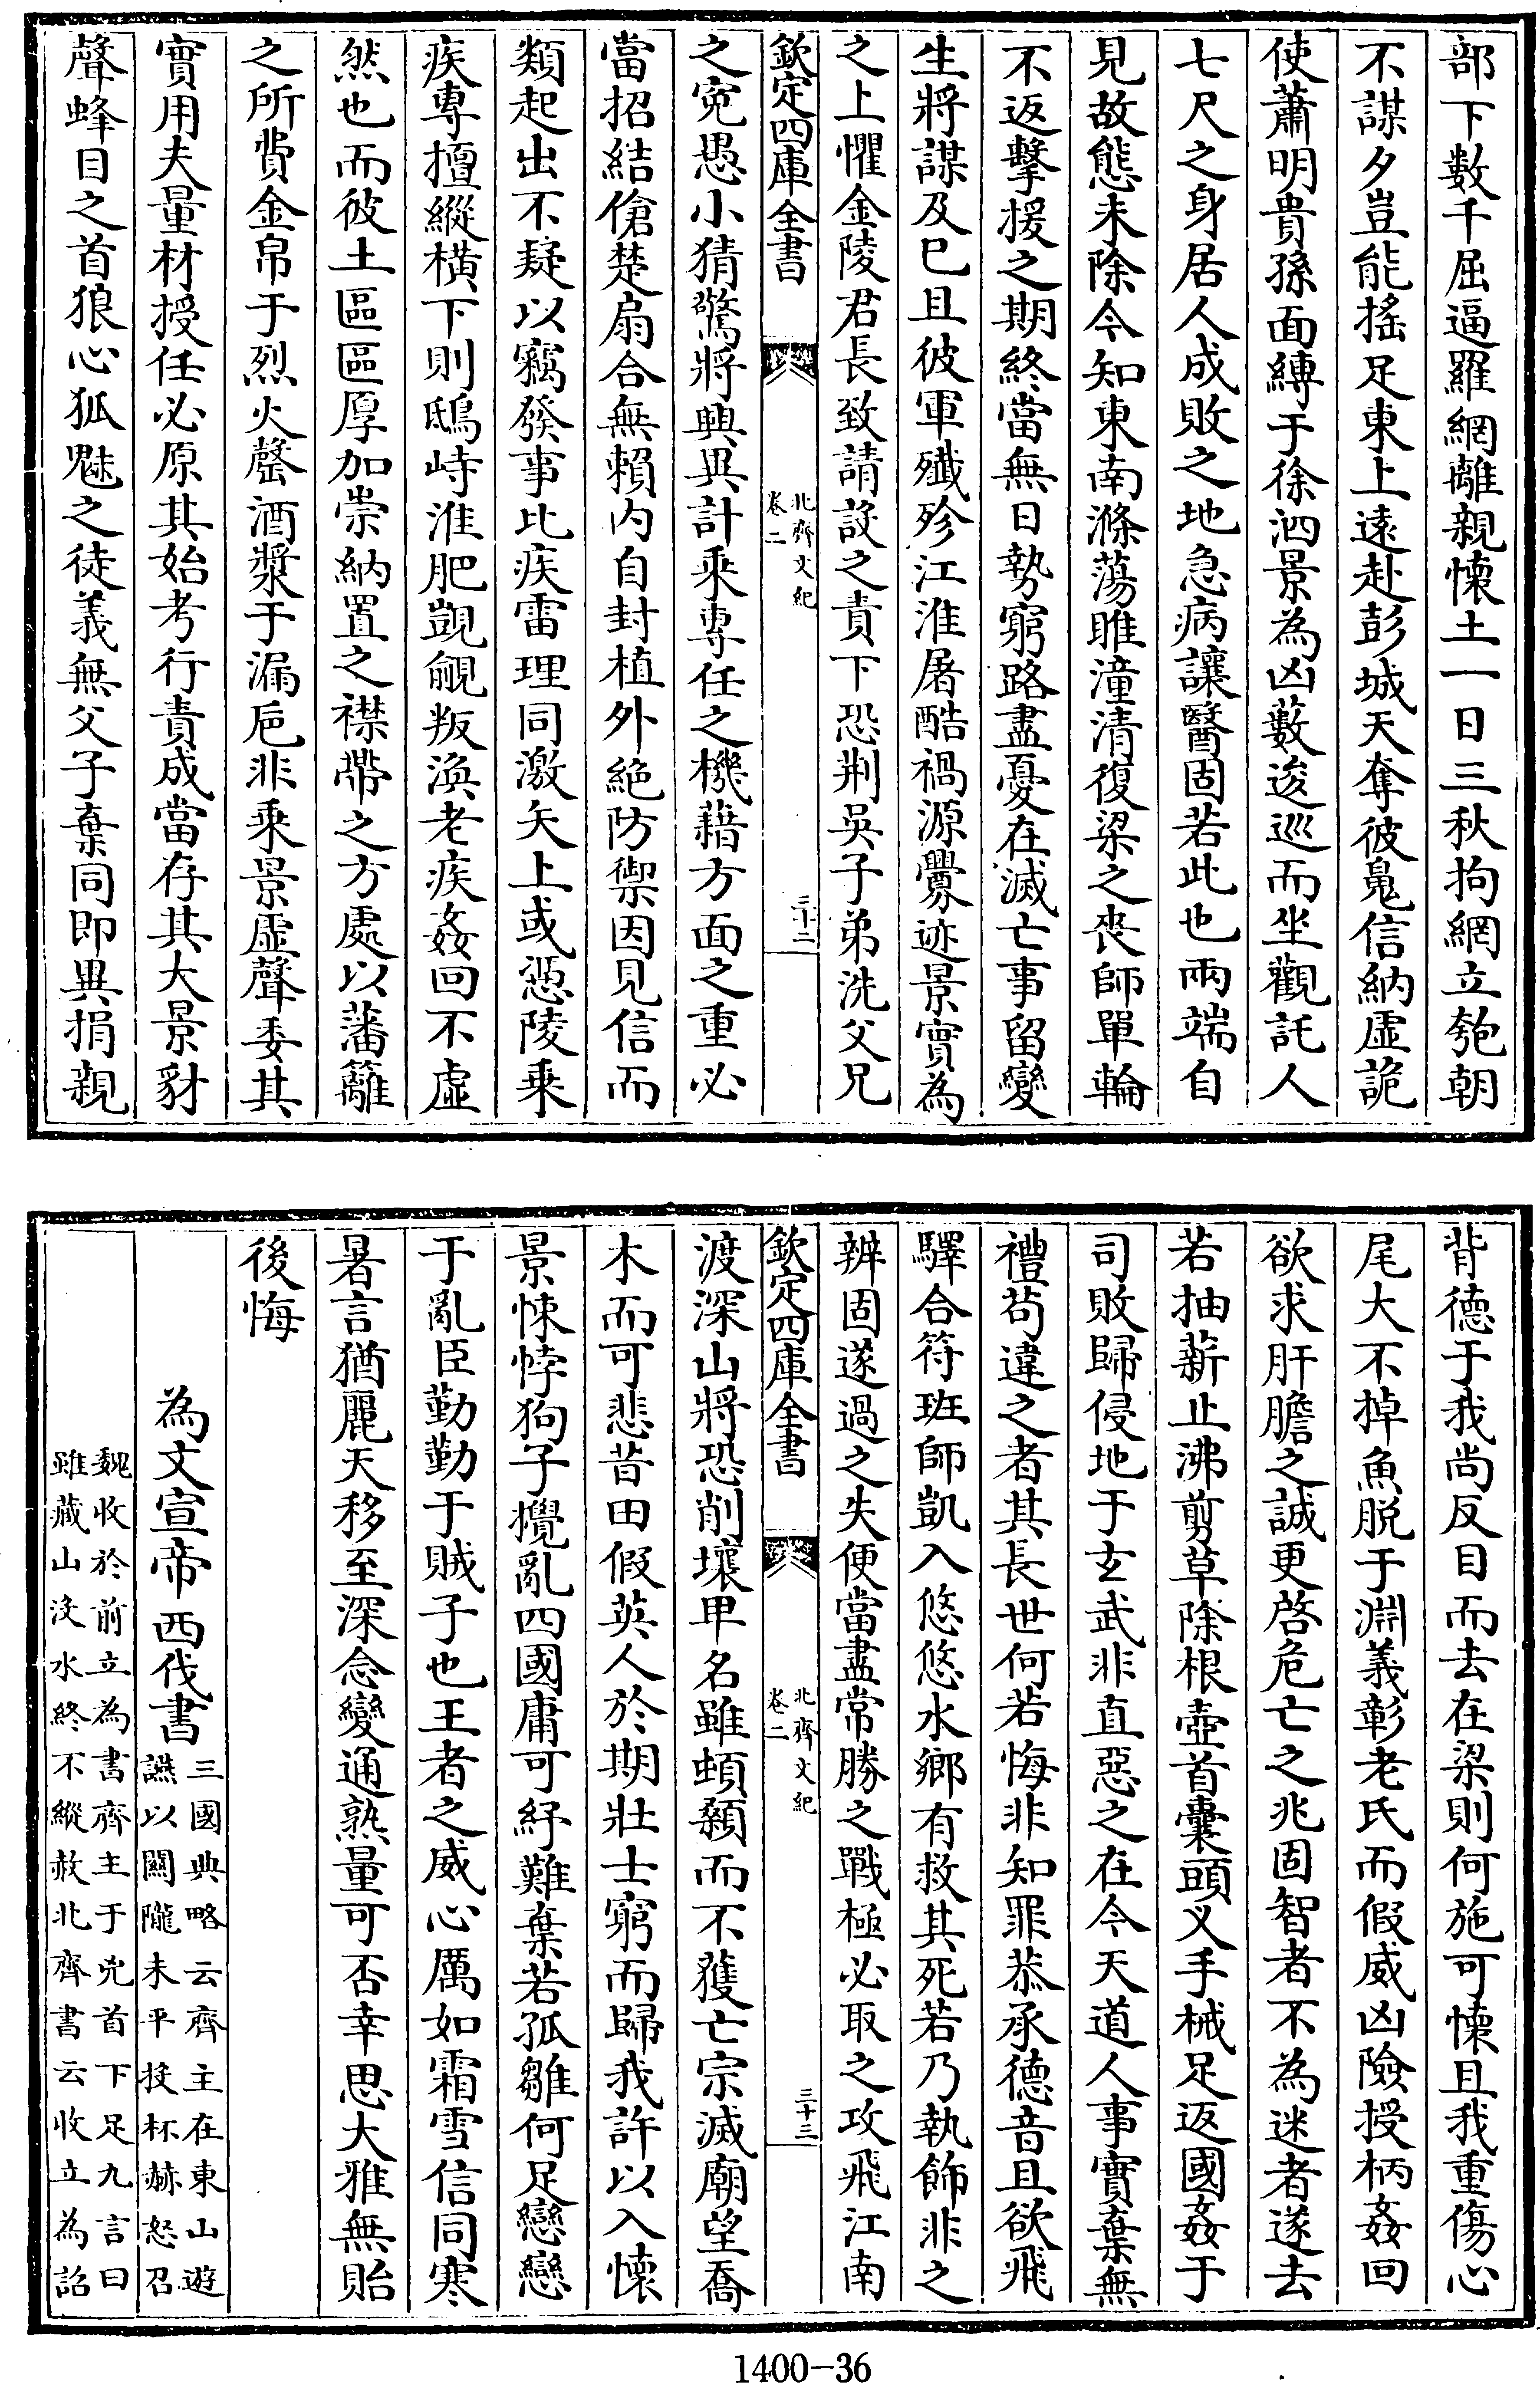 部下數千屈逼羅網離親懷土一日三秋拘網立匏朝
不謀夕豈能搖足東上遠赴彭城天奪彼鬼信納虛詭
使蕭明貴孫面縛于徐泗景為凶藪逡巡而坐觀託人
七尺之身居人成敗之地急病讓醫固若此也兩端自
見故態未除今知東南滌蕩睢潼清復梁之喪師單輪
不返擊援之期終當無日勢窮路盡憂在滅亡事留變
生將謀及已且彼軍殲殄江淮屠酷禍源釁迹景實為
之上懼金陵君長致請設之責下恐荆吳子弟洗父兄
欽定四庫全書
北齊文紀
卷二
三十二
之寃愚小猜驚將興異計乘專任之機藉方面之重必
當招結傖楚扇合無賴内自封植外絕防禦因見信而
類起出不疑以竊發事比疾雷理同激矢上或憑陵乘
疾專擅縱橫下則鴟峙淮肥覬覦叛渙老疾姦回不虛
然也而彼土區區厚加崇納置之襟帶之方處以藩籬
之所費金帛于烈火罄酒漿于漏巵非乘景虛聲委其
實用夫量材授任必原其始考行責成當存其大景豺
聲蜂目之首狼心狐魅之徒義無父子棄同即異捐親
背德于我尚反目而去在梁則何施可懷且我重傷心
尾大不掉魚脫于淵義彰老氏而假威凶險授柄姦回
欲求肝膽之誠更啓危亡之兆固智者不為迷者遂去
若抽薪止沸剪草除根壺首囊頭义手械足返國姦于
司敗歸侵地于玄武非直惡之在今天道人事實棄無
禮苟違之者其長世何若悔非知罪恭承德音且欲飛
驛合符班師凱入悠悠水鄉有救其死若乃執飾非之
辨固遂過之失便當盡常勝之戰極必取之攻飛江南
欽定四庫全書
北齊文紀
卷二
三十三
渡深山將恐削壤畀名雖蝢顙而不獲亡宗滅廟望喬
木而可悲昔田假英人於期壯士窮而歸我許以入懷
景悚悖狗子攪亂四國庸可紓難棄若孤雛何足戀戀
于亂臣勤勤于賊子也王者之威心厲如霜雪信同寒
暑言猶麗天移至深念變通熟量可否幸思大雅無貽
後悔
為文宣帝西伐書
三國典略云齊主在東山遊
讌以關隴未平投杯赫怒召
魏收於前立為書齊主于兇首下足九言曰
雖藏山沒水終不縱赦北齊書云收立為詔
1400-36